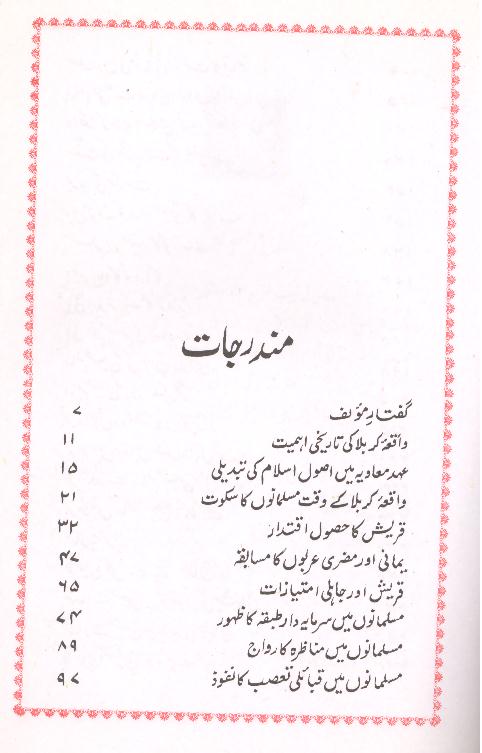 مندرجات
گفتارِ مؤلف ۷
واقعۂ کربلا کی تاریخی اہمیت ۱۱
عہد معاویہ میں اصول اسلام کی تبدیلی ۱۵
واقعۂ کربلا کے وقت مسلمانوں کا سکوت ۲۱
قریش کا حصول اقتدار ۳۲
یمانی اور مضری عربوں کا مسابقہ ۴۷
قریش اور جاہلی امتیازات ۶۵
مسلمانوں میں سرمایہ دار طبقہ کا ظہور ۷۴
مسلمانوں میں مناظرہ کا رواج ۸۹
مسلمانوں میں قبائلی تعصب کا نفوذ ۹۷